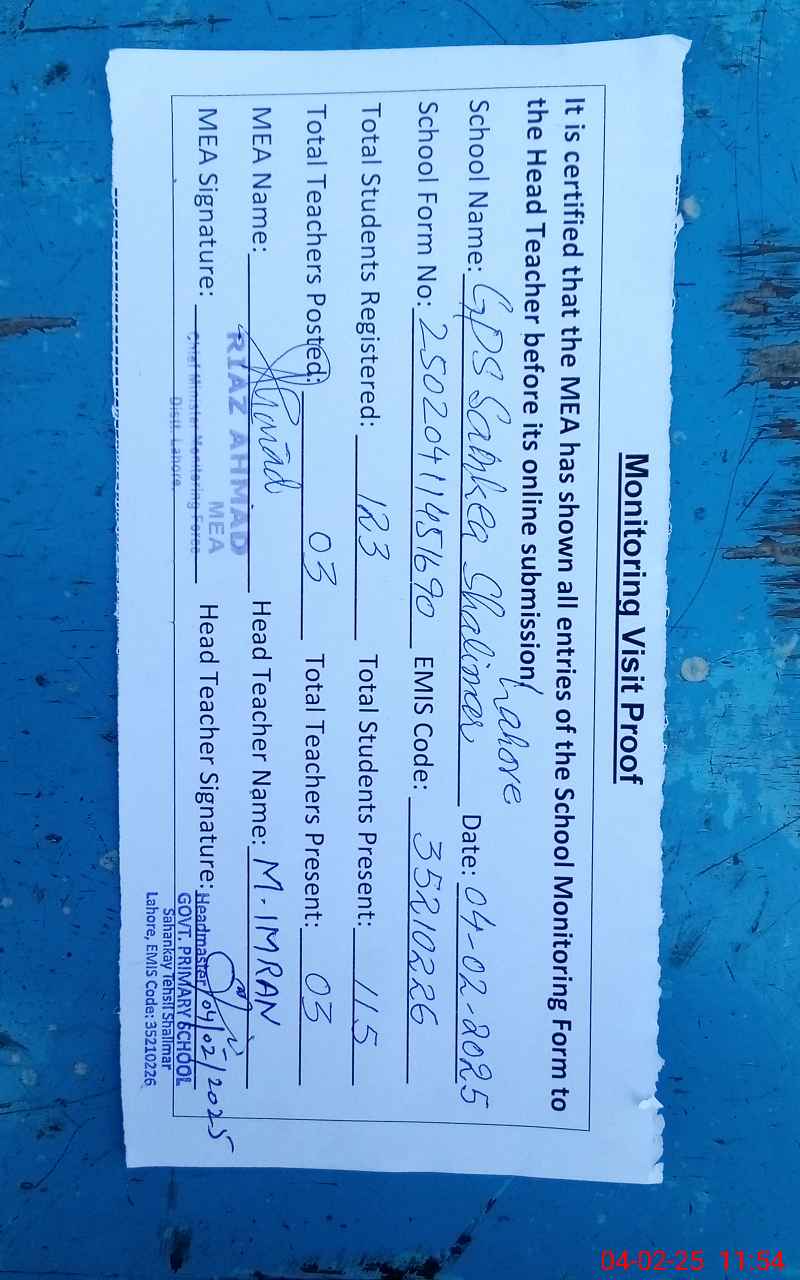 Monitoring Visit Proof
It is certified that the MEA has shown all entries of the School Monitoring Form to
the Head Teacher before its online submission. Lahore
School Name: GPS Sahnkea Shalimar Date: 04-02-2025
School Form No: 25020411451690 EMIS Code: 35210226
Total Students Registered: 123 Total Students Present: 115
Total Teachers Posted: 03 Total Teachers Present: 03
MEA Name: Ahmad Head Teacher Name: M. IMRAN
RIAZ AHMAD
MEA
MEA Signature: Head Teacher Signature: 04/02/2025
Chief Minister Monitoring Force
Distt. Lahore.
Headmaster
GOVT. PRIMARY SCHOOL
Sahankay Tehsil Shalimar
Lahore, EMIS Code: 35210226
04-02-25 11:54